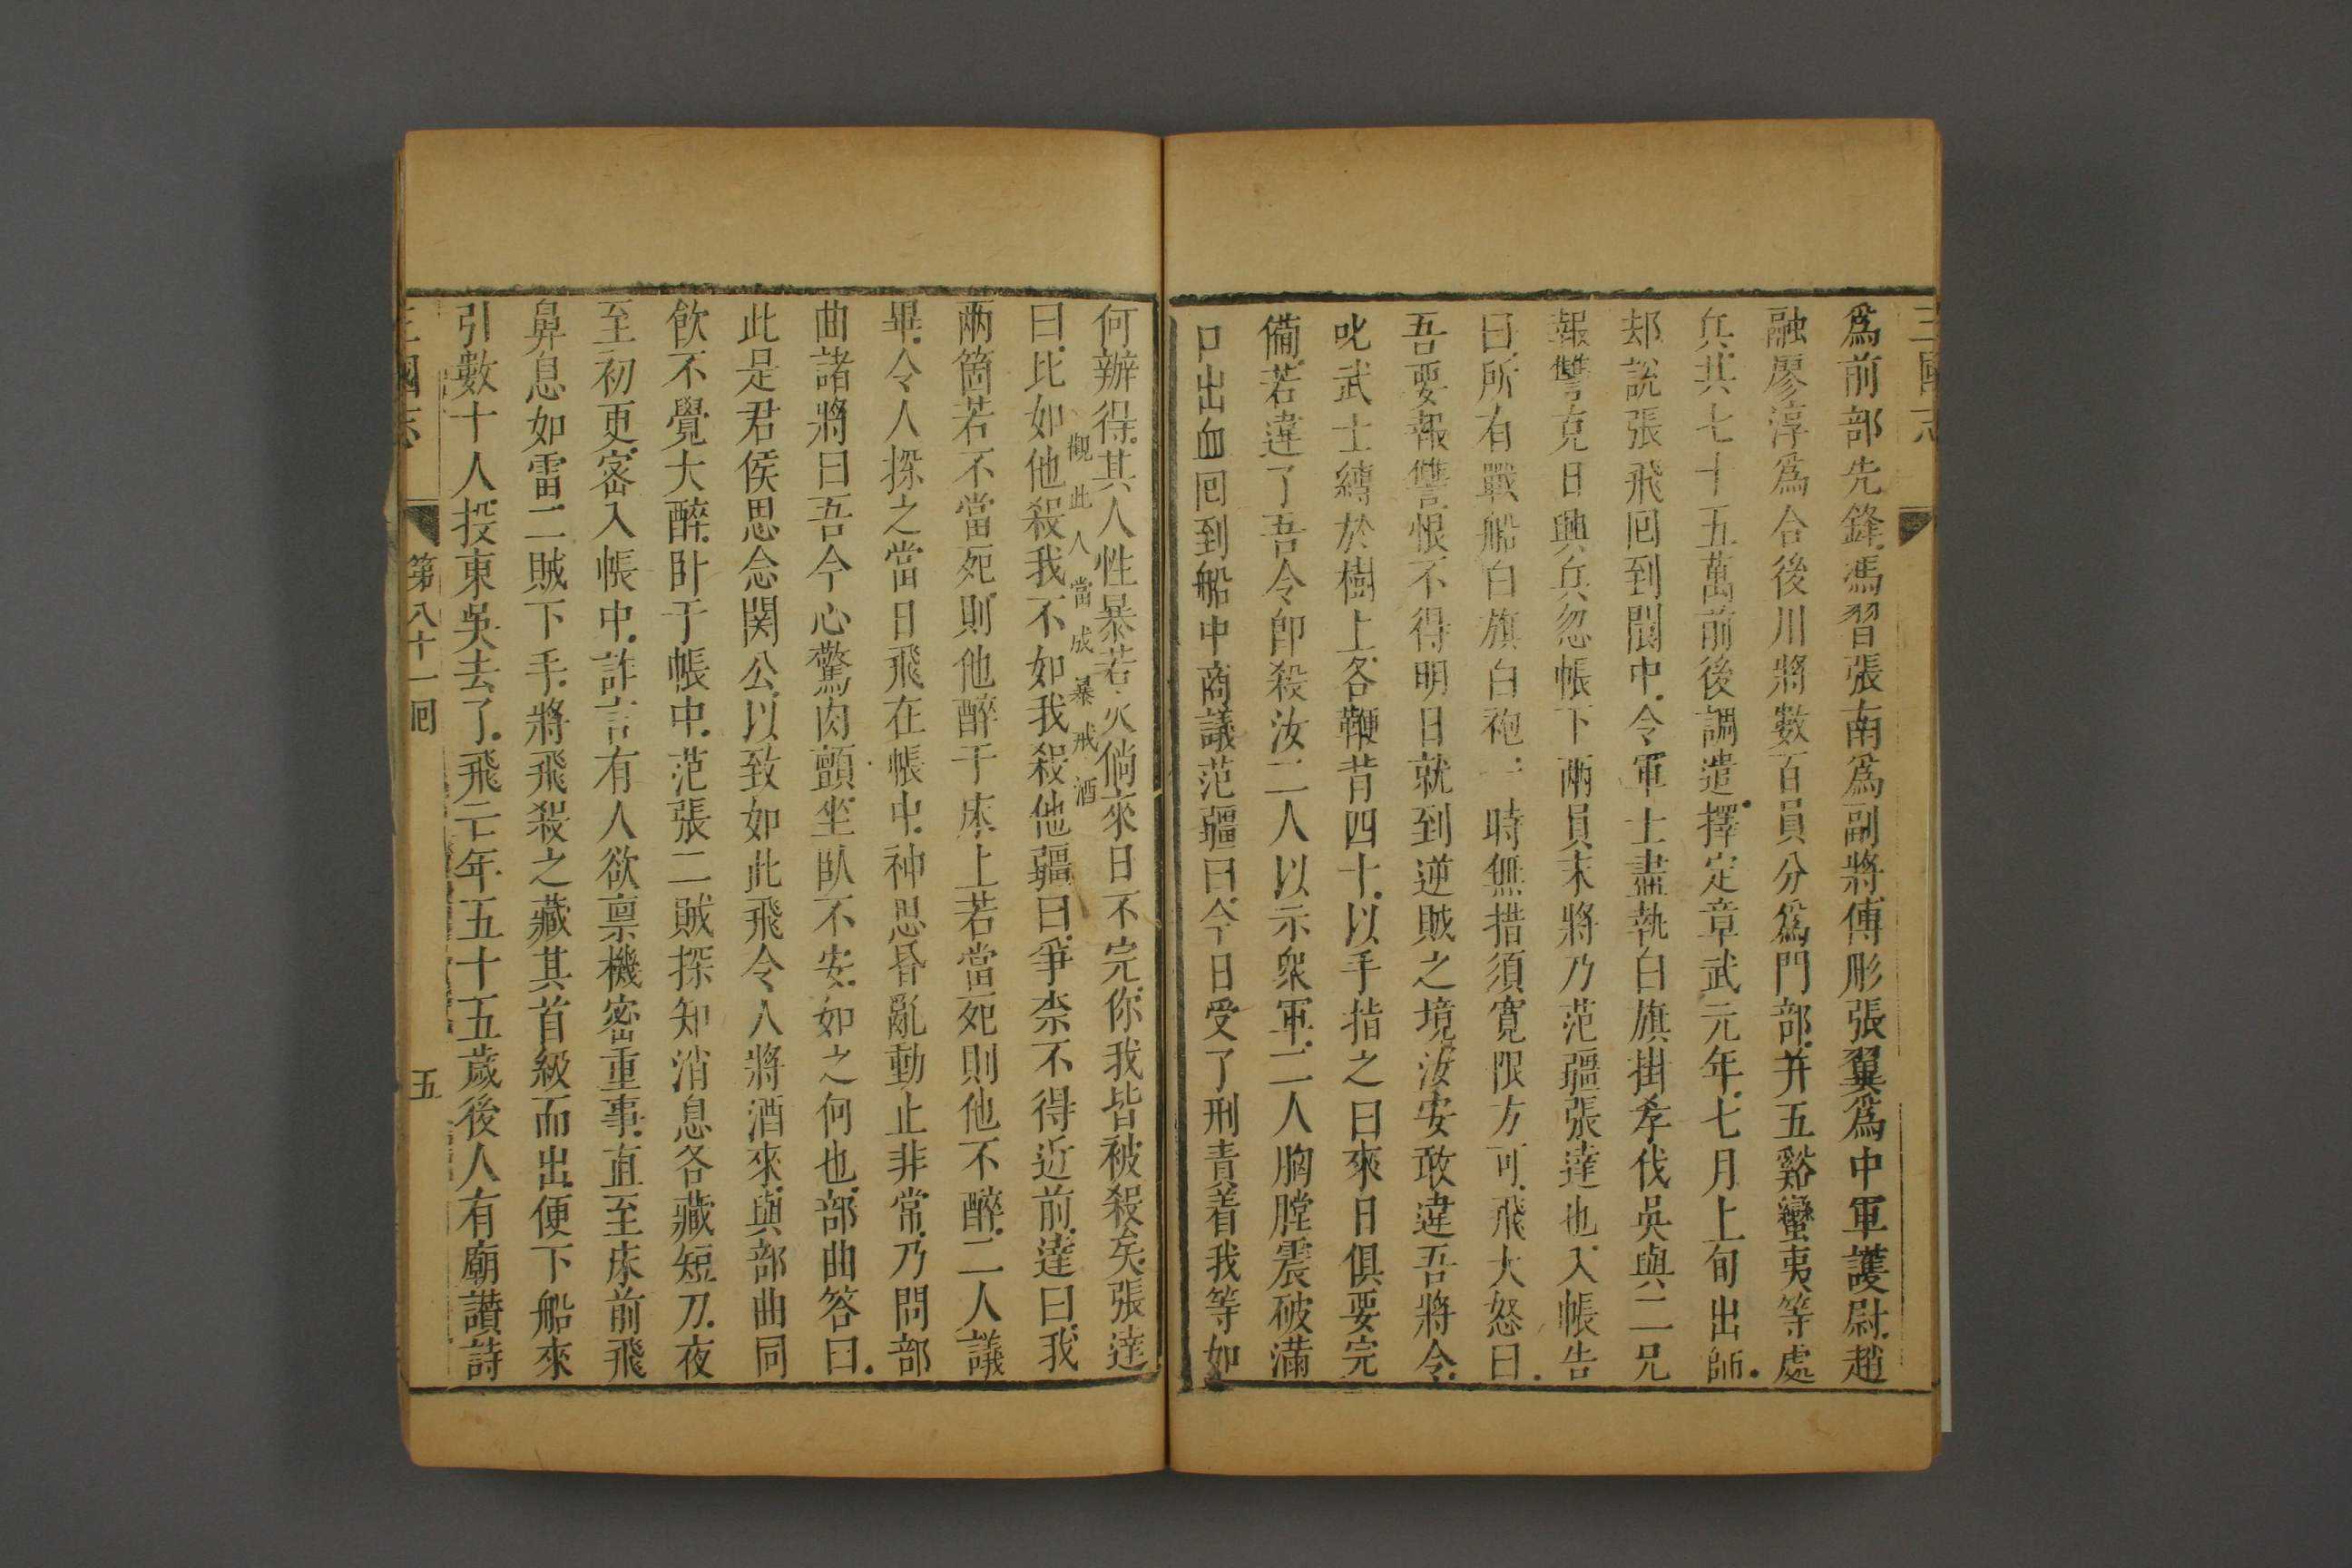 三國志
爲前部先鋒馮習張南爲副將傅彤張翼爲中軍護尉趙
融廖淳爲合後川將數百員分爲門部并五谿蠻夷等處
兵共七十五萬前後調遣擇定章武元年七月上旬出師
却說張飛囘到閬中令軍士盡執白旗掛孝伐吳與二兄
報讐克日興兵忽帳下兩員末將乃范疆張達也入帳告
曰所有戰船白旗白袍一時無措須寛限方可飛大怒曰
吾要報讐恨不得明日就到逆賊之境汝安敢違吾將令
叱武士縛於樹上各鞭背四十以手指之曰來日俱要完
備若違了吾令卽殺汝二人以示衆軍二人胸膛震破滿
口出血囘到船中商議范疆曰今日受了刑責着我等如
何辦得其人性暴若火倘來日不完你我皆被殺矣張達
觀此人當成暴戒酒
曰比如他殺我不如我殺他疆曰爭柰不得近前達曰我
兩箇若不當死則他醉于床上若當死則他不醉二人議
畢令人探之當日飛在帳中神思昏亂動止非常乃問部
曲諸將曰吾今心驚肉顫坐臥不安如之何也部曲答曰
此是君侯思念関公以致如此飛令人將酒來與部曲同
飲不覺大醉卧于帳中范張二賊探知消息各藏短刀夜
至初更宻入帳中詐言有人欲禀機密重事直至床前飛
鼻息如雷二賊下手將飛殺之藏其首級而出便下船來
引數十人投東吳去了飛亡年五十五歲後人有廟讃詩
三國志 第八十一囘 五